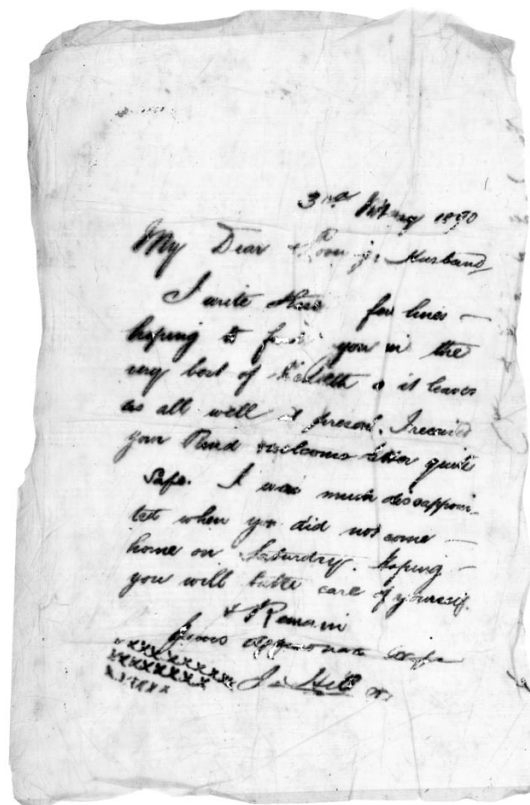 3rd 1890
My Dear Loving Husband
I write these few lines —
hoping to find you in the
very best of Health & it leaves
us all well at present. I received
your kind welcome letter quite
safe. I was much disappoin-
ted when you did not come —
home on Saturday. Hoping —
you will take care of yourself.
& I Remain
yours affectionate Wife
xxxxxxxxxx
xxxxxxxx J. Hill
xxxxxx